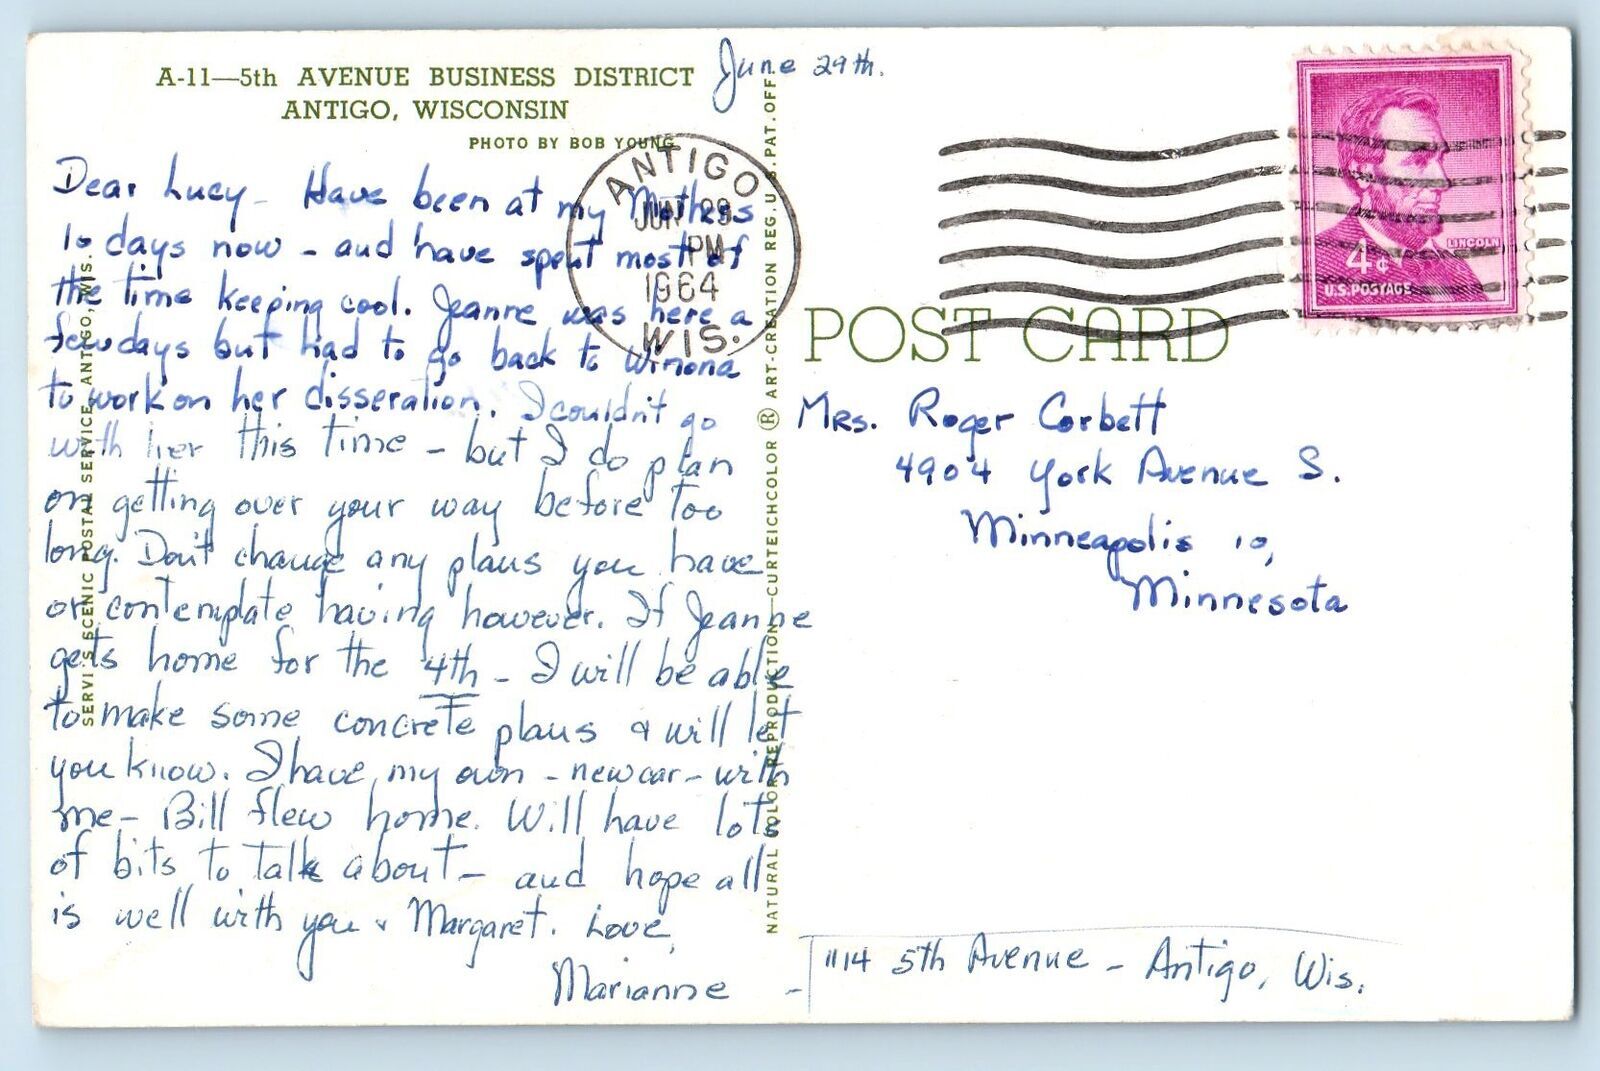 A-11—5th AVENUE BUSINESS DISTRICT
ANTIGO, WISCONSIN
PHOTO BY BOB YOUNG
June 29th.
Dear Lucy - Have been at my Mothers
10 days now - and have spent most of
the time keeping cool. Jeanne was here a
few days but had to go back to Winona
to work on her disseration. I couldn't go
with her this time - but I do plan
on getting over your way before too
long. Don't change any plans you have
or contemplate having however. If Jeanne
gets home for the 4th - I will be able
to make some concrete plans & will let
you know. I have my own - new car - with
me - Bill flew home. Will have lots
of bits to talk about - and hope all
is well with you & Margaret. Love,
Marianne -
1114 5th Avenue - Antigo, Wis.
ANTIGO
JUN 29
PM
1964
WIS.
SERVI'S SCENIC POSTAL SERVICE, ANTIGO, WIS.
NATURAL COLOR REPRODUCTION—CURTEICHCOLOR ® ART-CREATION REG. U.S. PAT. OFF.
POST CARD
LINCOLN
4¢
U.S. POSTAGE
Mrs. Roger Corbett
4904 York Avenue S.
Minneapolis 10,
Minnesota